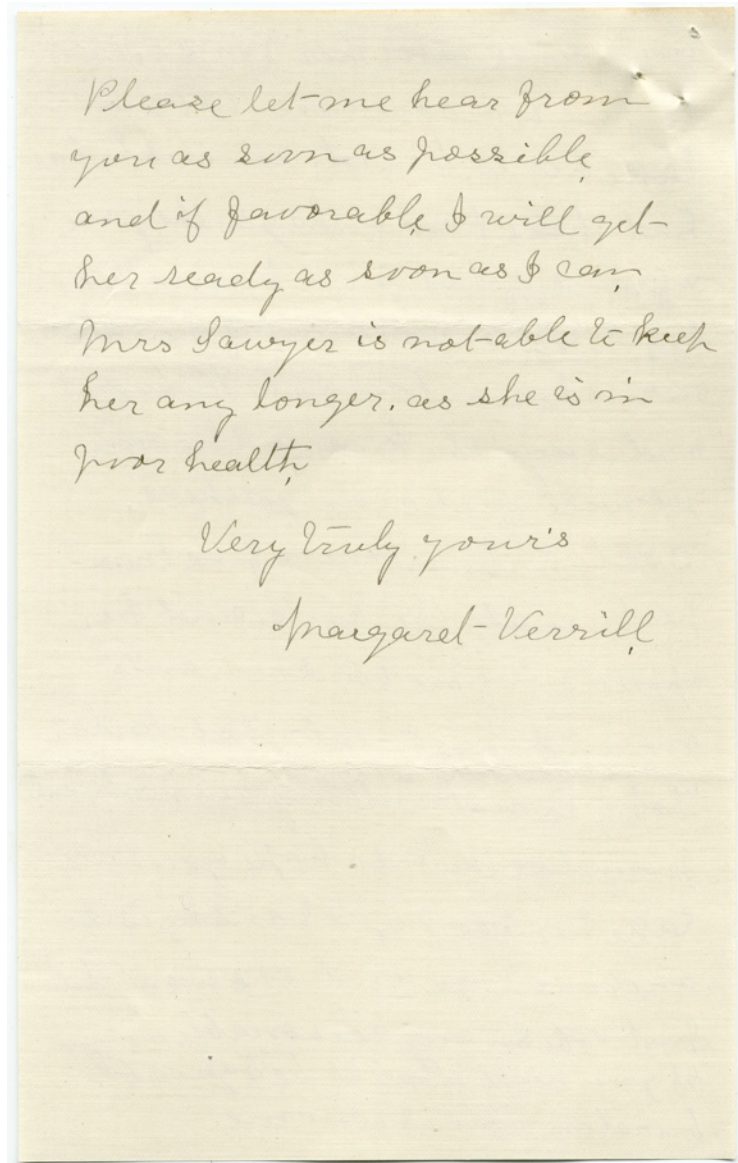 Please let me hear from
you as soon as possible,
and if favorable, I will get
her ready as soon as I can,
Mrs Sawyer is not able to keep
her any longer. as she is in
poor health,
Very truly yours
Margaret Verrill,